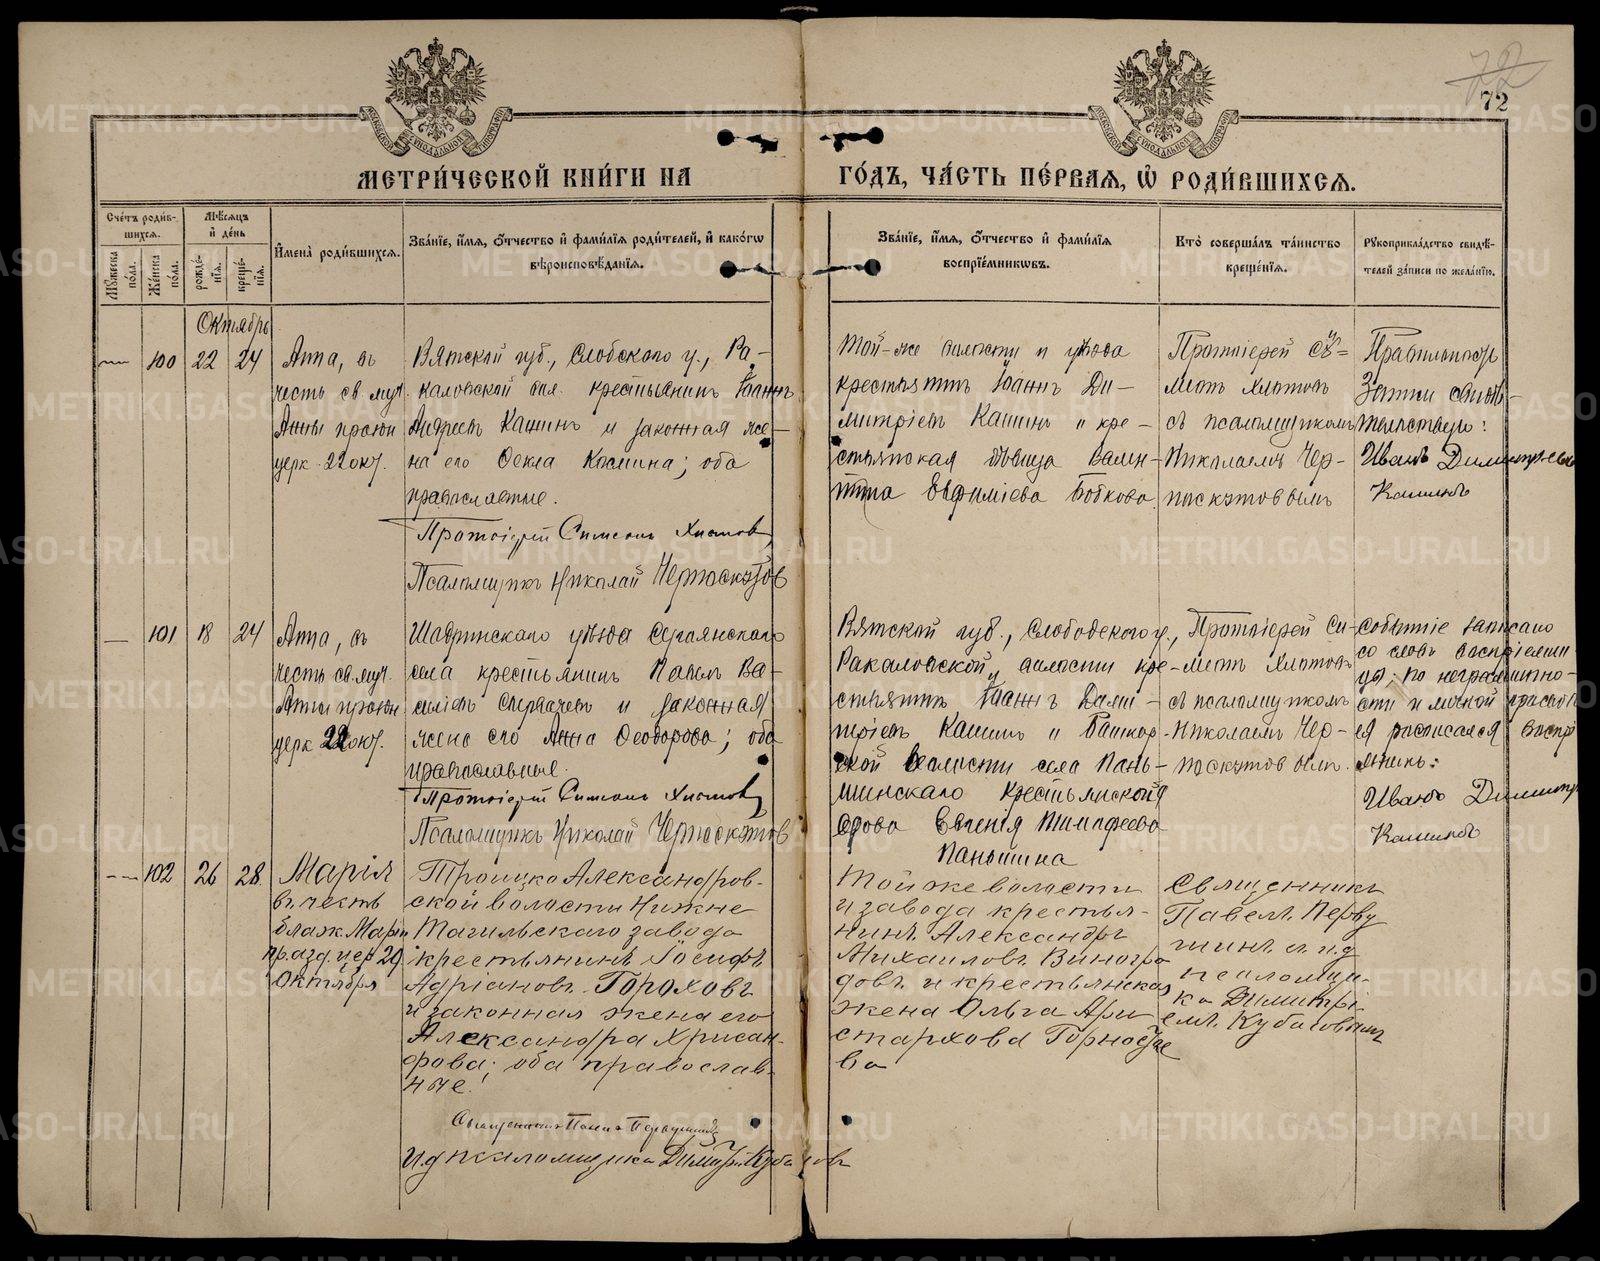 72
72
МЕТРИ́ЧЕСКОЙ КНИ́ГИ НА ГО́ДЪ, ЧА́СТЬ ПЕ́РВАЯ, Ѡ҆ РОДИ́ВШИХСЯ.
Сче́тъ роди́в-
шихся.
Мѣ́сяцъ
и҆ де́нь
Му́жеска
по́ла.
Же́нска
по́ла.
рожде́-
нїя.
креще́-
нїя.
И҆мена̀ роди́вшихся.
Зва́нїе, и҆́мя, ѻ҆́тчество и҆ фами́лїя роди́телей, и҆ како́гѡ
вѣроисповѣ́данїя.
Зва́нїе, и҆́мя, ѻ҆́тчество и҆ фами́лїя
воспрїе́мниковъ.
Кто̀ соверша́лъ та́инство
креще́нїя.
Рукоприкла́дство свидѣ́-
телей за́писи по жела́нїю.
Октябрь
100 22 24
Анна, въ
честь св. муч.
Анны праздн
церк. 22 окт.
Вятской губ., Слобского у., Ра-
каловской вол. крестьянинъ Іоаннъ
Андреевъ Кашинъ и законная же-
на его Ѳекла Космина; оба
православные.
Протоіерей Симеонъ Хлынов
Псаломщикъ Николай Черноскутов
Той-же волости и уѣзда
крестьянинъ Іоаннъ Ди-
митріевъ Кашинъ и кре-
стьянская дѣвица Вален-
тина Евфиміева Бобкова.
Протоіерей Си-
меонъ Хлыновъ
съ псаломщикомъ
Николаемъ Чер-
носкутовымъ
Правильность
записи свидѣ-
тельствую:
Иванъ Димитріевъ
Кашинъ
101 18 24
Анна, въ
честь св. муч.
Анны праздн
церк 22 окт.
Шадринскаго уѣзда Сугоянскаго
села крестьянинъ Павелъ Ва-
силіевъ Спервачевъ и законная
жена его Анна Ѳеодорова; оба
православные.
Протоіерей Симеонъ Хлынов
Псаломщикъ Николай Черноскутов
Вятской губ., Слободского у.,
Ракаловской волости кре-
стьянинъ Іоаннъ Дими-
тріевъ Кашинъ и Башкар-
ской волости села Пань-
шинскаго крестьянской
вдова Евгенія Тимофеева
Паньшина
Протоіерей Си-
меонъ Хлыновъ
съ псаломщикомъ
Николаемъ Чер-
носкутовымъ.
Событіе записано
со словъ воспріемни-
ца: по неграмотно-
сти и личной просьбѣ
ея росписался воспрі
емникъ:
Иванъ Димитр
Кашинъ
102 26 28.
Марія
въ честь
блаж Маріи
празд. цер 29
Октября
Троицко Александров-
ской волости Нижне
Тагильскаго завода
крестьянинъ Іосифъ
Адріановъ Гороховъ
и законная жена его
Александра Хрисан-
фова; оба православ-
ные.
Священникъ Павелъ Первушинъ
И. д псаломщика Димитрій Кубасовъ
Той же волости
и завода крестья-
нинъ Александръ
Михаиловъ Виногра
довъ и крестьянская
жена Ольга Ари
стархова Горносуае
ва
Священникъ
Павелъ Перву
шинъ и. и. д
псаломщи-
ка Димитрі
емъ Кубасовымъ